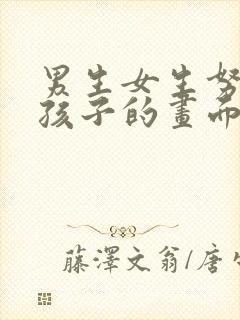 男生女生努
孩子的畫而
藤澤文翁/唐